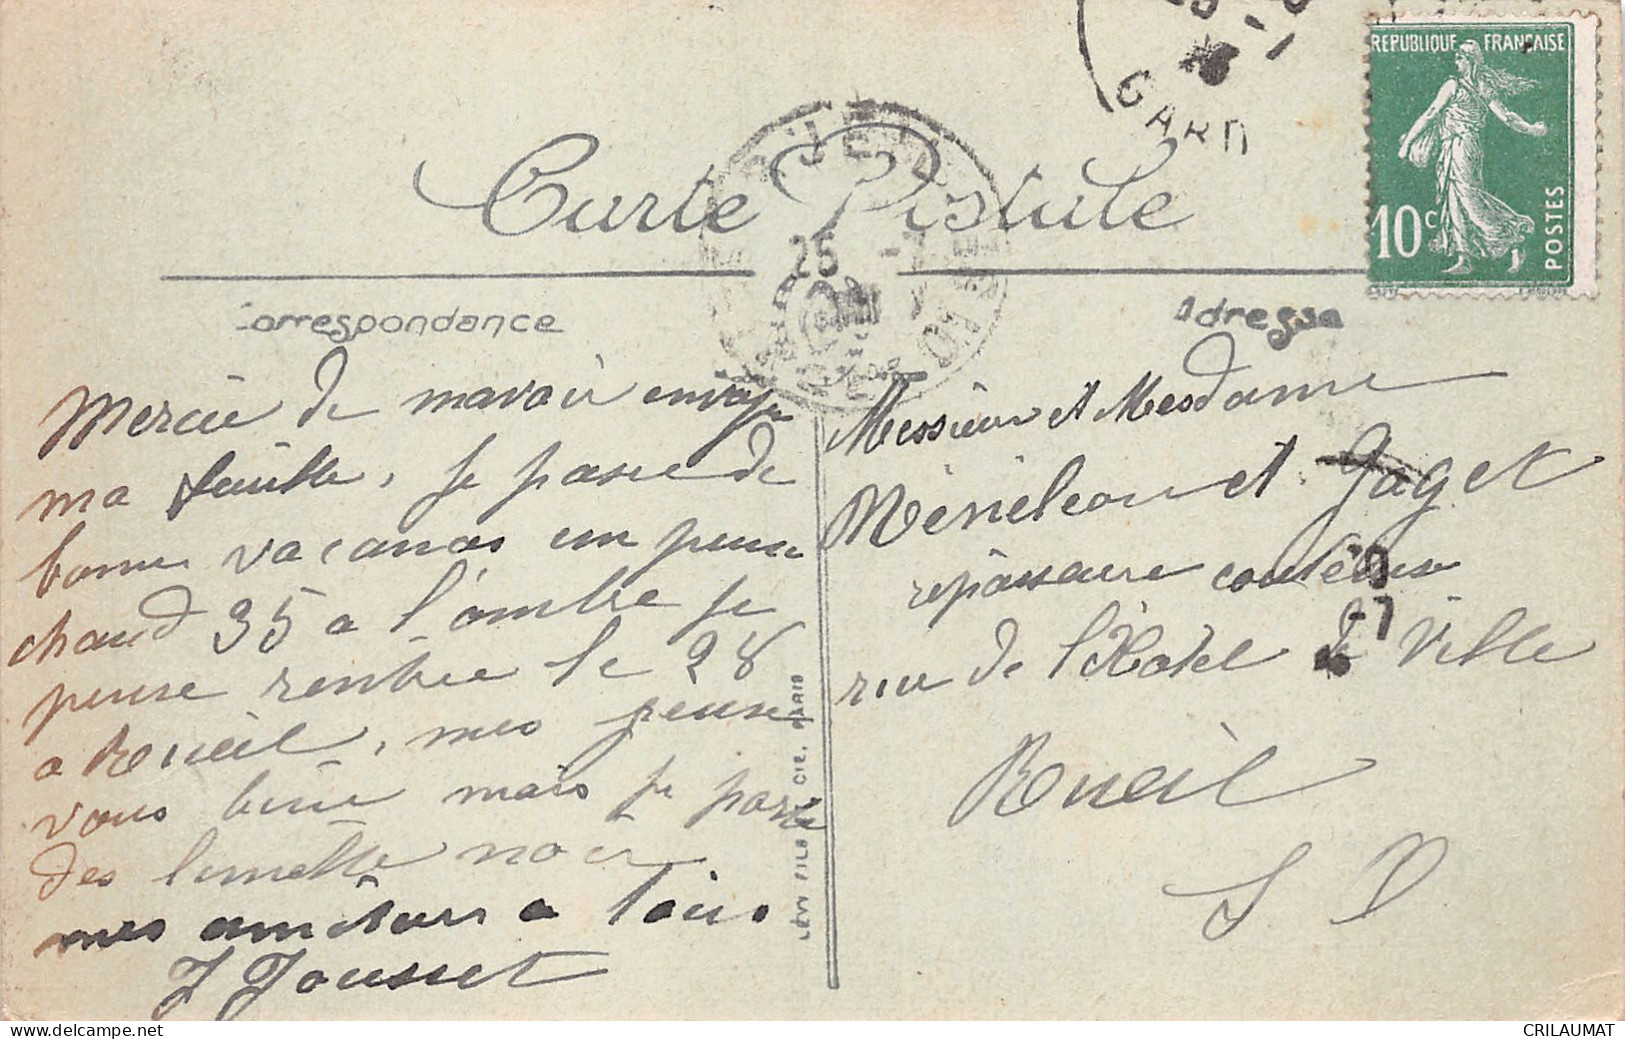 GARD
REPUBLIQUE FRANCAISE
10c
POSTES
Carte Postale
25 -7
Correspondance
Adresse
Mercie de mavoir envoyer
ma feuille, je passe de
bonnes vacances un peux
chaud 35 a l'ombre je
pense rentree le 28
a Rueil, mes pense
vous bien mais je porte
des lunette noir
mes amitiers a tous
J Jousset
Messieur et Mesdame
et Jaget
repasseure
rue de l'Hotel de Ville
Rueil
S O
LEVY FILS CIE. PARIS
CRILAUMAT